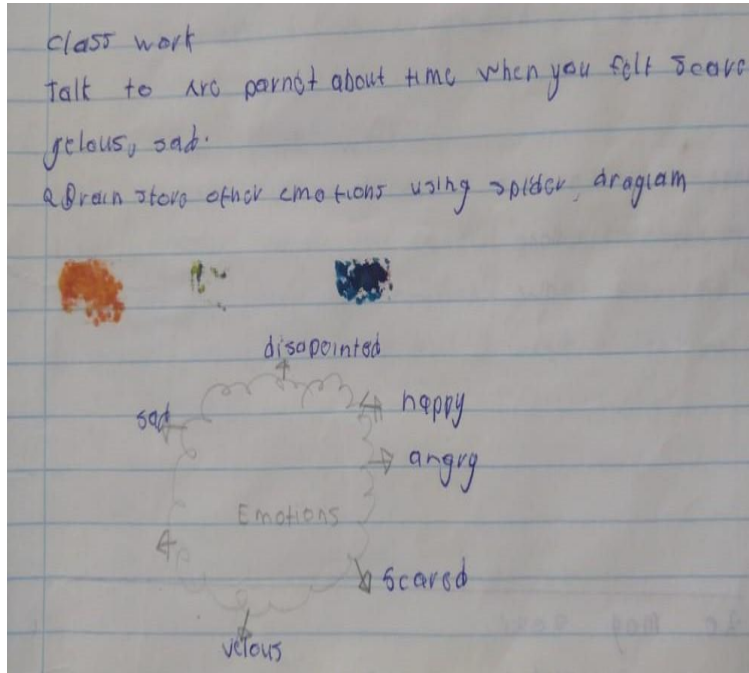 class work
Talk to are parnet about time when you felt scare
gelous, sad.
2 Brain store other emotions using spider dragiam
disapointed
sad
happy
angry
Emotions
scared
velous